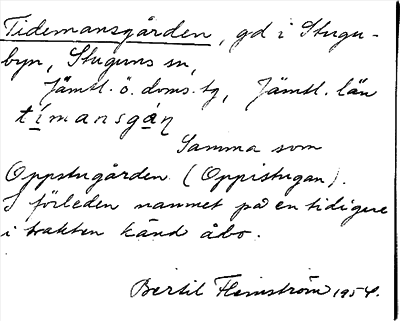 Tidemansgården, gd i Stugu-
byn, Stuguns sn,
Jämtl. ö. doms. tg, Jämtl. län
tímansgáɳ
Samma som
Oppstugården (Oppistugan).
I förleden namnet på en tidigare
i trakten känd åbo.
Bertil Flemström 1954.